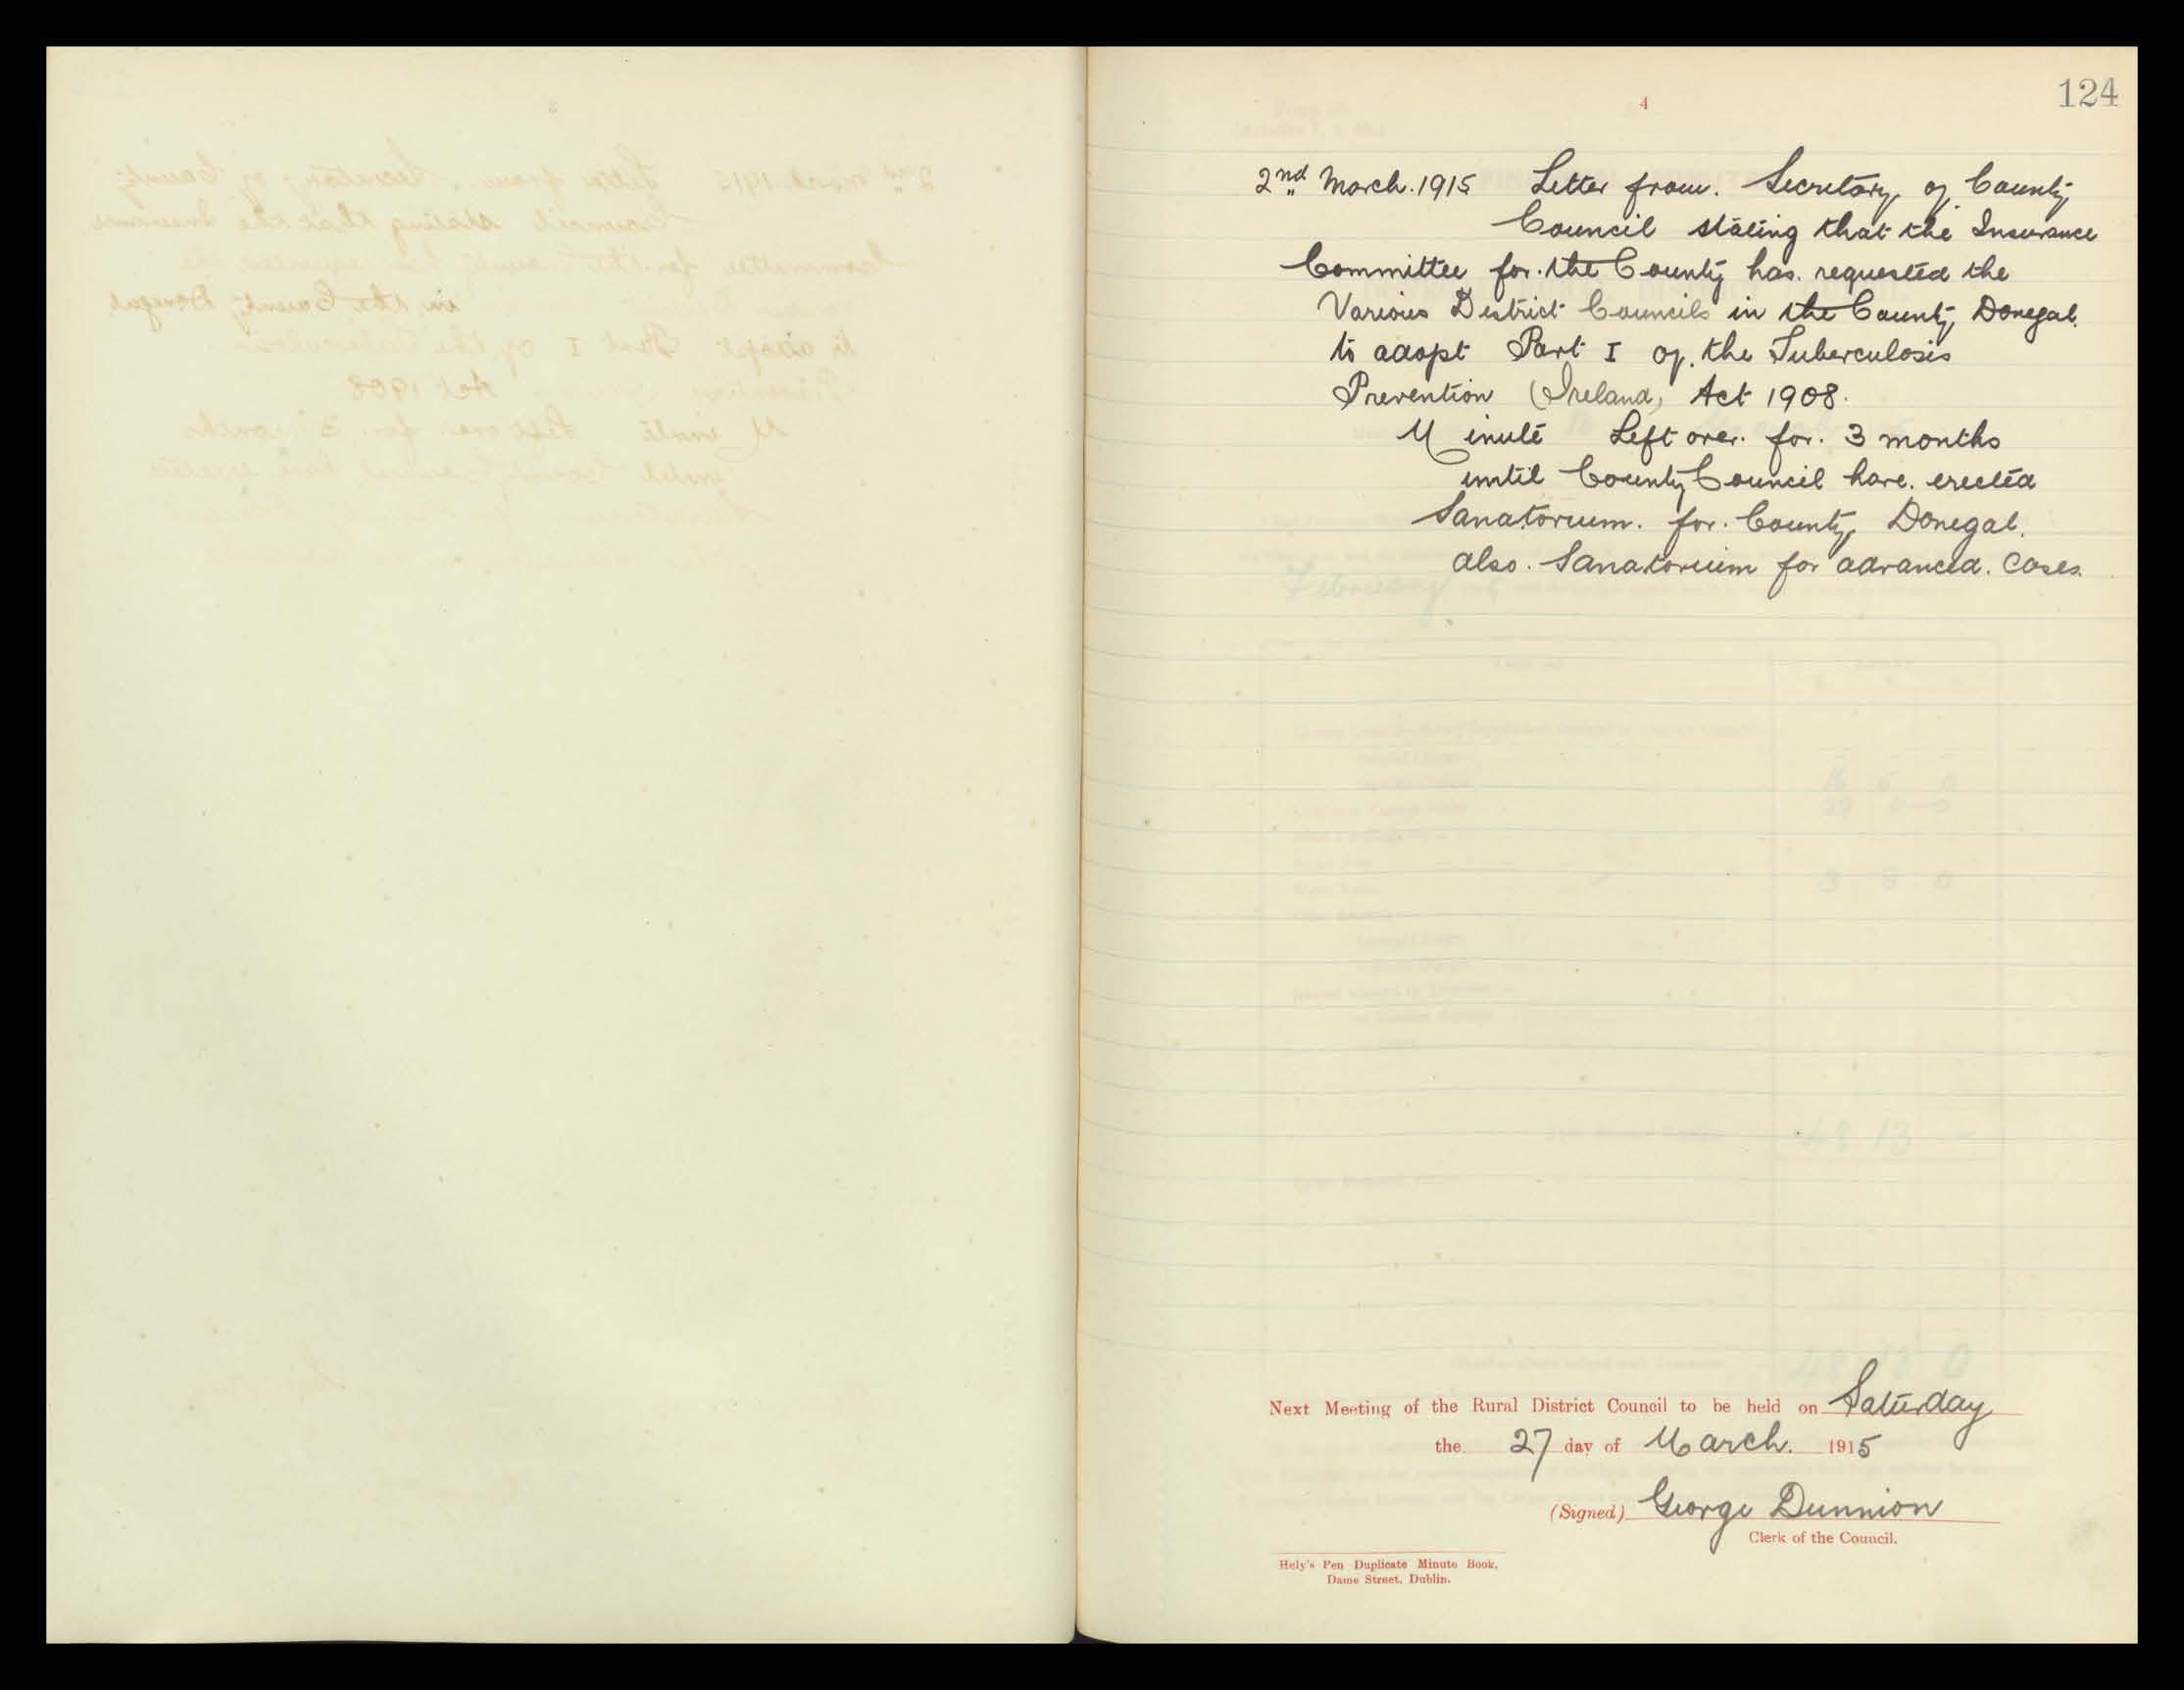 124
4
2nd March. 1915 Letter from. Secretary of County
Council stating that the Insurance
Committee for. the County has. requested the
Various District Councils in the County Donegal.
to adopt Part I of. the Tuberculosis
Prevention (Ireland) Act 1908.
Minute Left over. for. 3 months
until County Council have. erected
Sanatorium. for. County Donegal.
also. Sanatorium for advanced. cases.
Next Meeting of the Rural District Council to be held on Saturday
the 27 day of March. 1915
(Signed) George Dunnion
Clerk of the Council.
Hely's Pen Duplicate Minute Book,
Dame Street, Dublin.